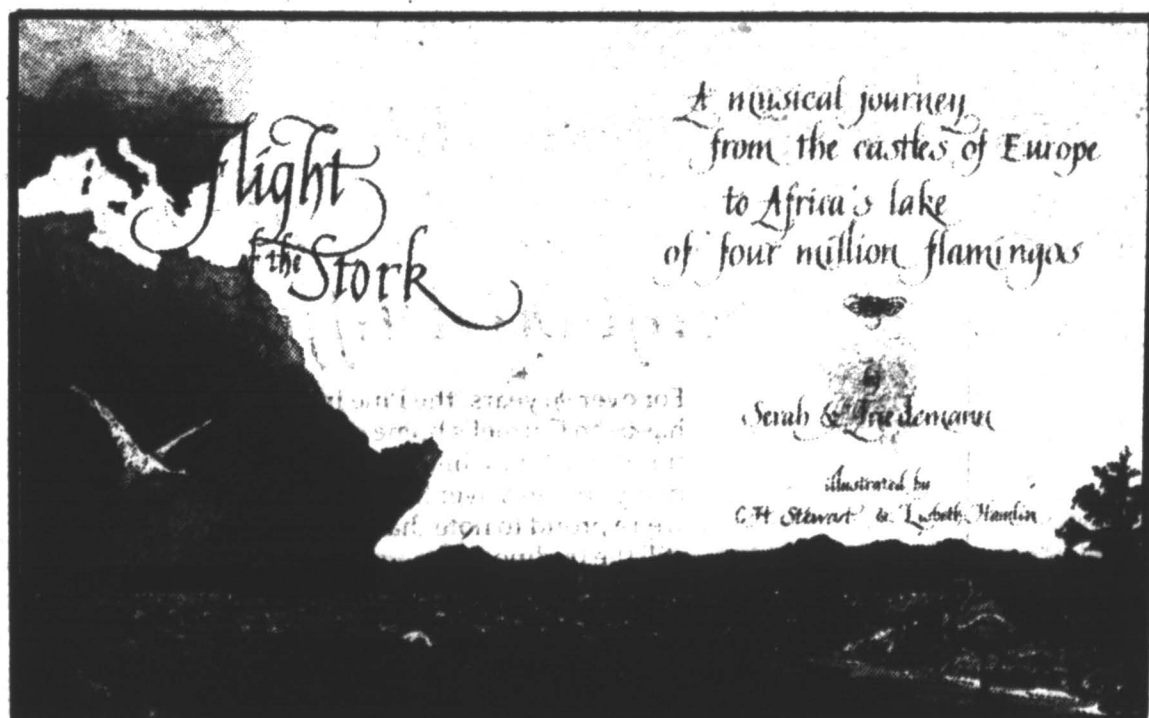 flight
of the Stork
A musical journey
from the castles of Europe
to Africa's lake
of four million flamingos
by
Serah & Friedemann
illustrated by
C H Stewart & Lisbeth Hamlin